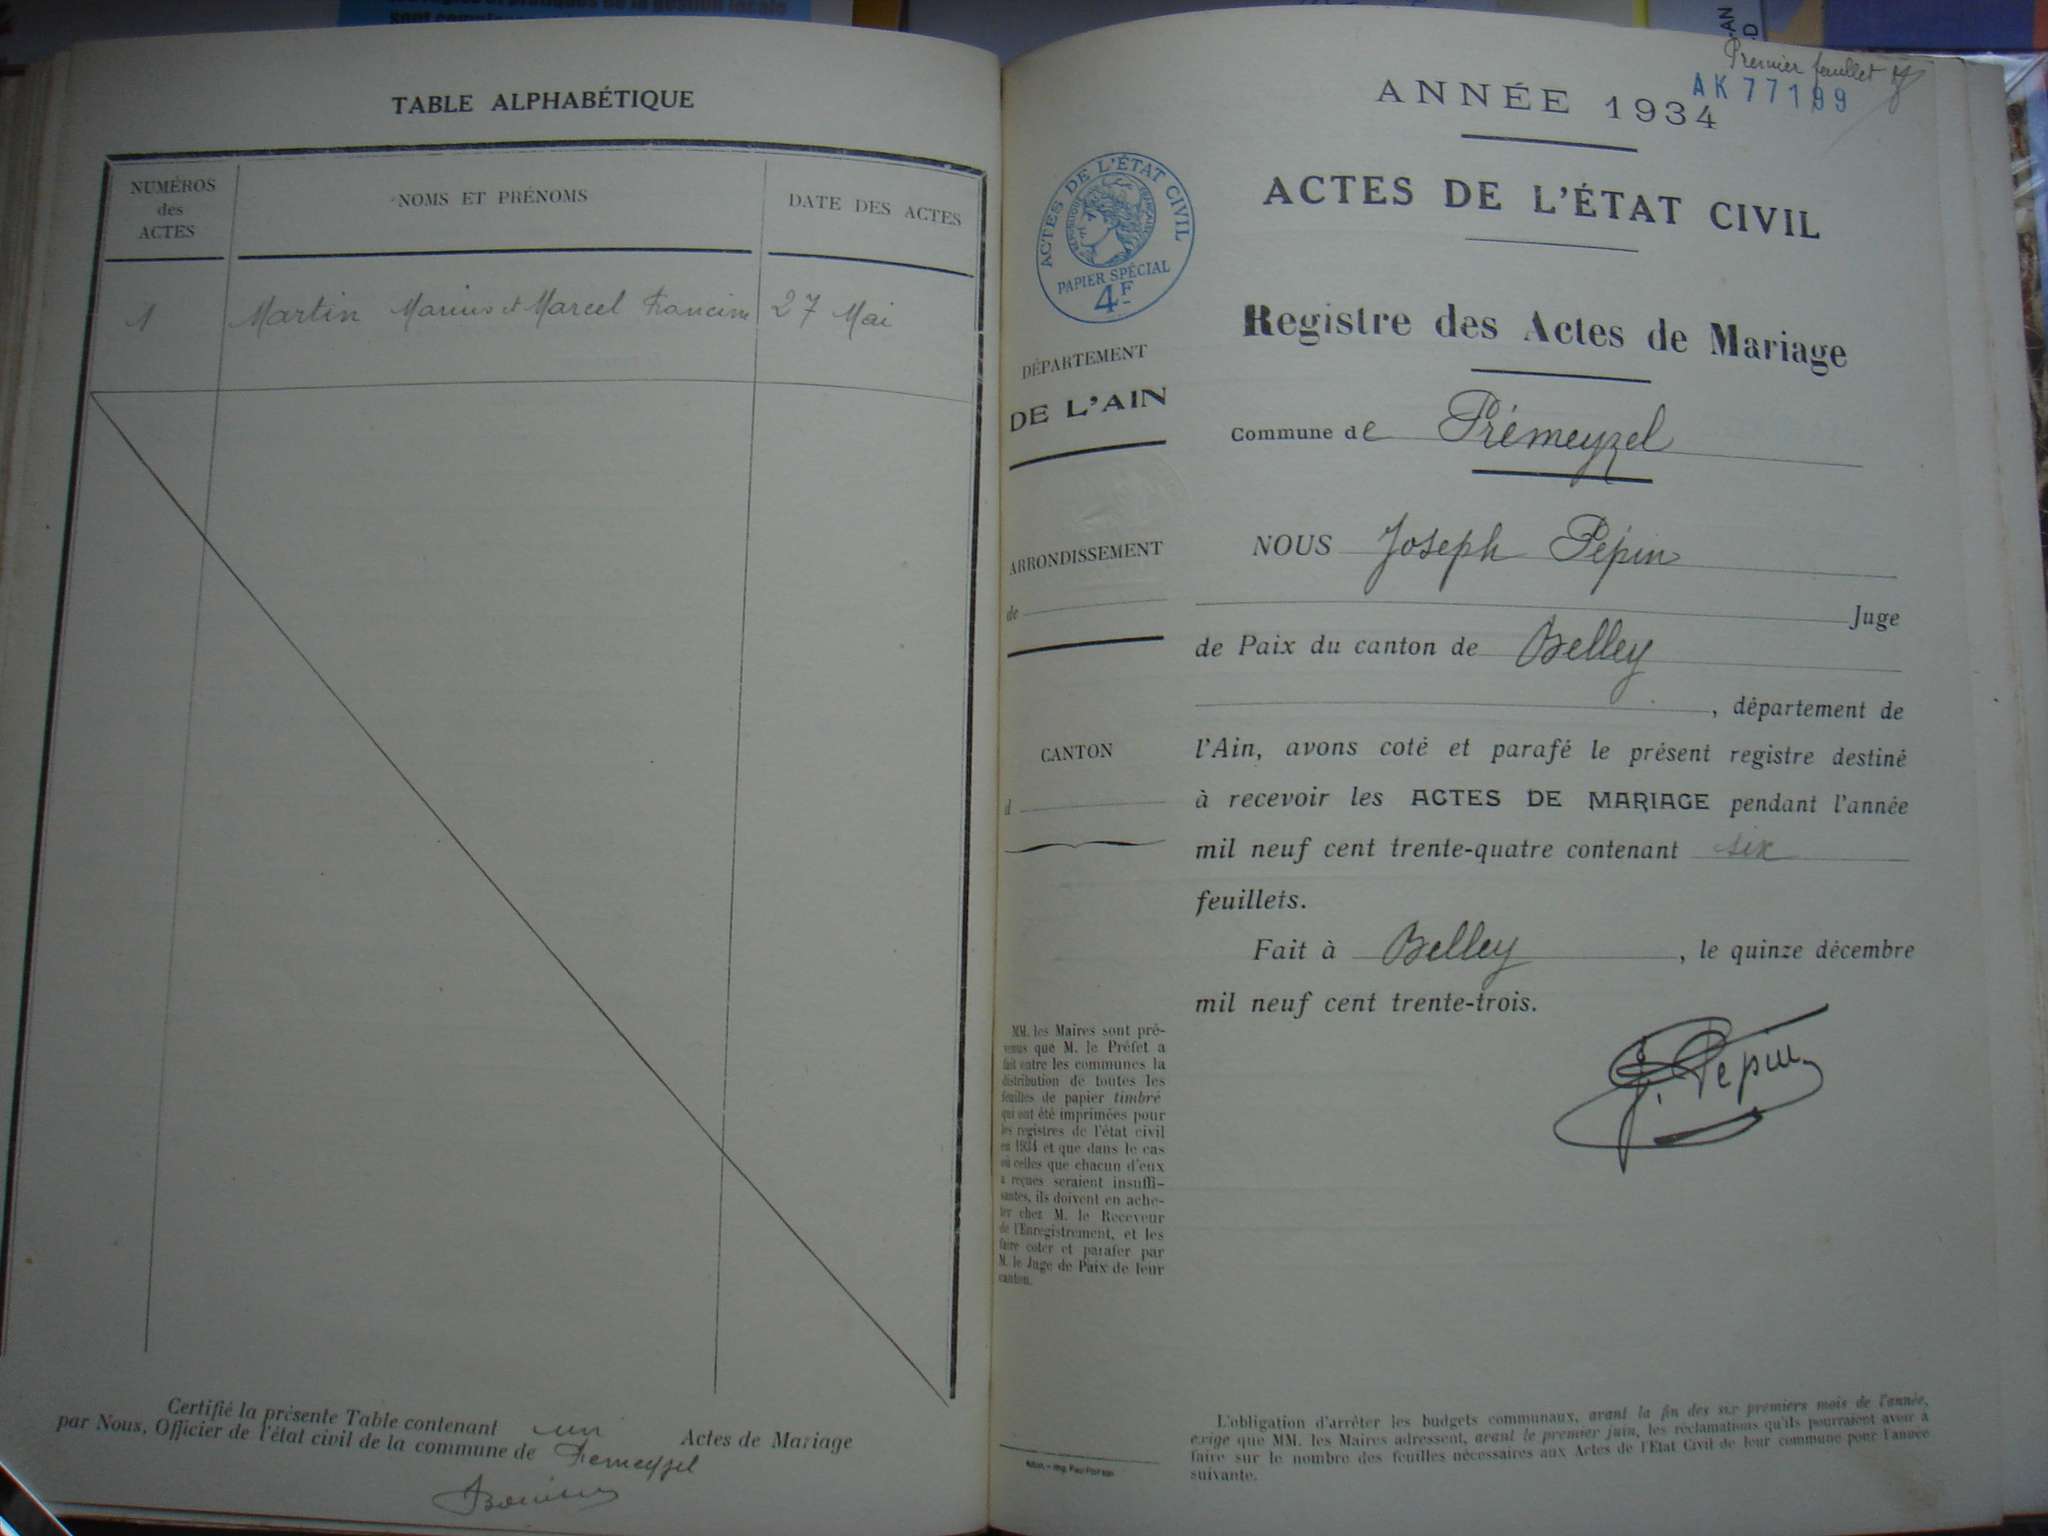 TABLE ALPHABÉTIQUE
NUMÉROS
des
ACTES
NOMS ET PRÉNOMS
DATE DES ACTES
1 Martin Marius et Marcel Francine 27 Mai
Certifié la présente Table contenant un Actes de Mariage
par Nous, Officier de l'état civil de la commune de Premeyzel
Premier feuillet
AK 77199
ANNÉE 1934
ACTES DE L'ÉTAT CIVIL
ACTES DE L'ÉTAT CIVIL
RÉPUBLIQUE FRANÇAISE
PAPIER SPÉCIAL
4F
Registre des Actes de Mariage
DÉPARTEMENT
DE L'AIN
Commune de Prémeyzel
ARRONDISSEMENT
de
CANTON
d
NOUS Joseph Pépin
Juge
de Paix du canton de Belley
, département de
l'Ain, avons coté et parafé le présent registre destiné
à recevoir les ACTES DE MARIAGE pendant l'année
mil neuf cent trente-quatre contenant six
feuillets.
Fait à Belley, le quinze décembre
mil neuf cent trente-trois.
J. Pépin
MM. les Maires sont pré-
venus que M. le Préfet a
fait entre les communes la
distribution de toutes les
feuilles de papier timbré
qui ont été imprimées pour
les registres de l'état civil
en 1934 et que dans le cas
où celles que chacun d'eux
a reçues seraient insuffi-
santes, ils doivent en ache-
ter chez M. le Receveur
de l'Enregistrement, et les
faire coter et parafer par
M. le Juge de Paix de leur
canton.
L'obligation d'arrêter les budgets communaux, avant la fin des six premiers mois de l'année,
exige que MM. les Maires adressent, avant le premier juin, les réclamations qu'ils pourraient avoir à
faire sur le nombre des feuilles nécessaires aux Actes de l'Etat Civil de leur commune pour l'année
suivante.